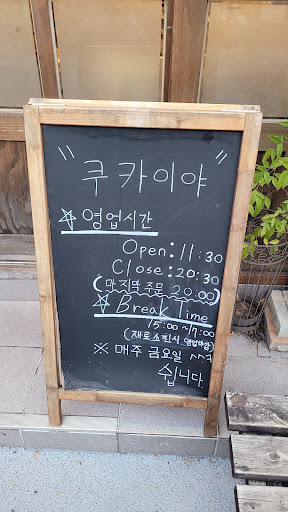 " 쿠카이야 "
☆ 영업시간
Open : 11:30
Close : 20:30
(마지막 주문 20:00)
☆ Break Time
15:00 ~ 17:00
(재료소진시 영업마감)
※ 매주 금요일 ^^
쉽니다.